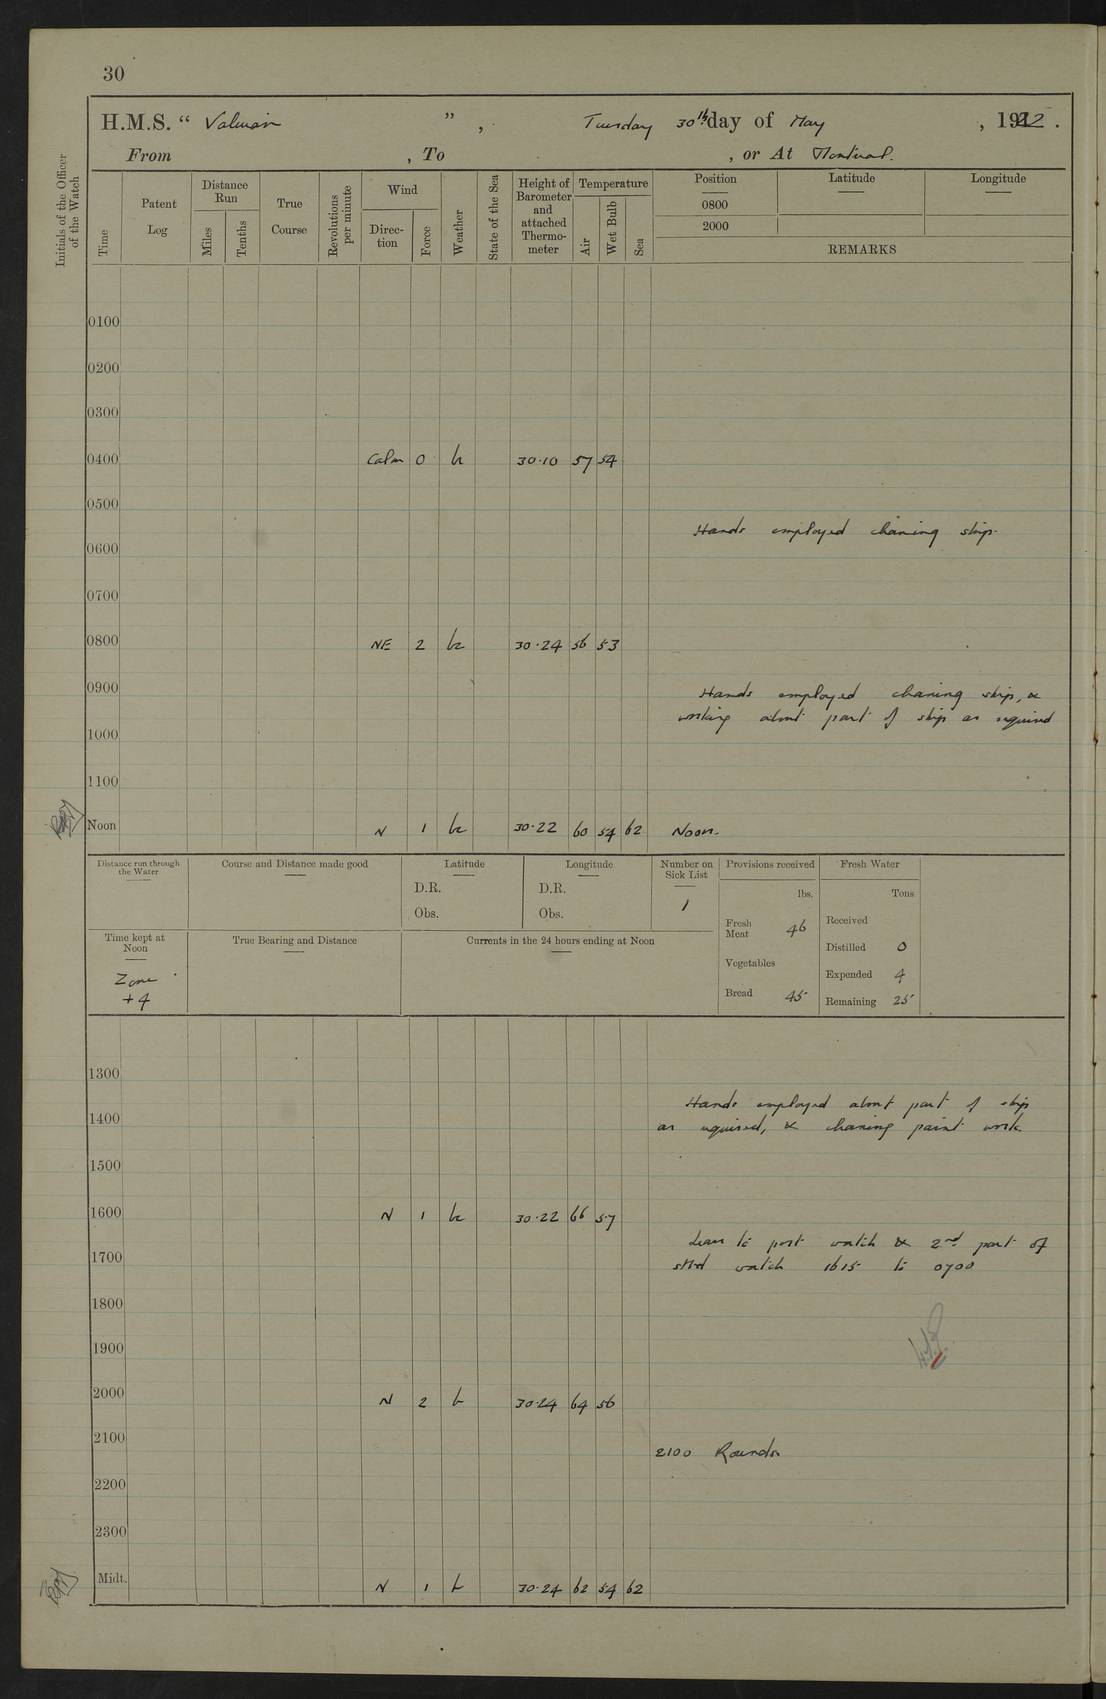 30
H.M.S. “ Valerian ” , Tuesday 30th day of May , 1922 .
From , To , or At Montreal.
Initials of the Officer of the Watch
Time
Patent Log
Distance Run
Miles
Tenths
True Course
Revolutions per minute
Wind
Direc-tion
Force
Weather
State of the Sea
Height of Barometer and attached Thermo-meter
Temperature
Air
Wet Bulb
Sea
Position Latitude Longitude
0800
2000
REMARKS
0100
0200
0300
0400 Calm 0 b 30·10 57 54
0500
Hands employed cleaning ship.
0600
0700
0800 NE 2 bc 30·24 56 53
0900 Hands employed cleaning ship, &
working about part of ship as required
1000
1100
Noon N 1 bc 30·22 60 54 62 Noon.
Distance run through the Water
Course and Distance made good
Latitude
D.R.
Obs.
Longitude
D.R.
Obs.
Number on Sick List
1
Provisions received
lbs.
Fresh Meat 46
Vegetables
Bread 45
Fresh Water
Tons
Received
Distilled 0
Expended 4
Remaining 25
Time kept at Noon
Zone
+4
True Bearing and Distance
Currents in the 24 hours ending at Noon
1300
Hands employed about part of ship
1400 as required, & cleaning paint work
1500
1600 N 1 bc 30·22 66 57
Leave to port watch & 2nd part of
1700 stbd watch 1615 to 0700
1800
1900
2000 N 2 b 30·24 64 56
2100 2100 Rounds
2200
2300
Midt. N 1 b 30·24 62 54 62